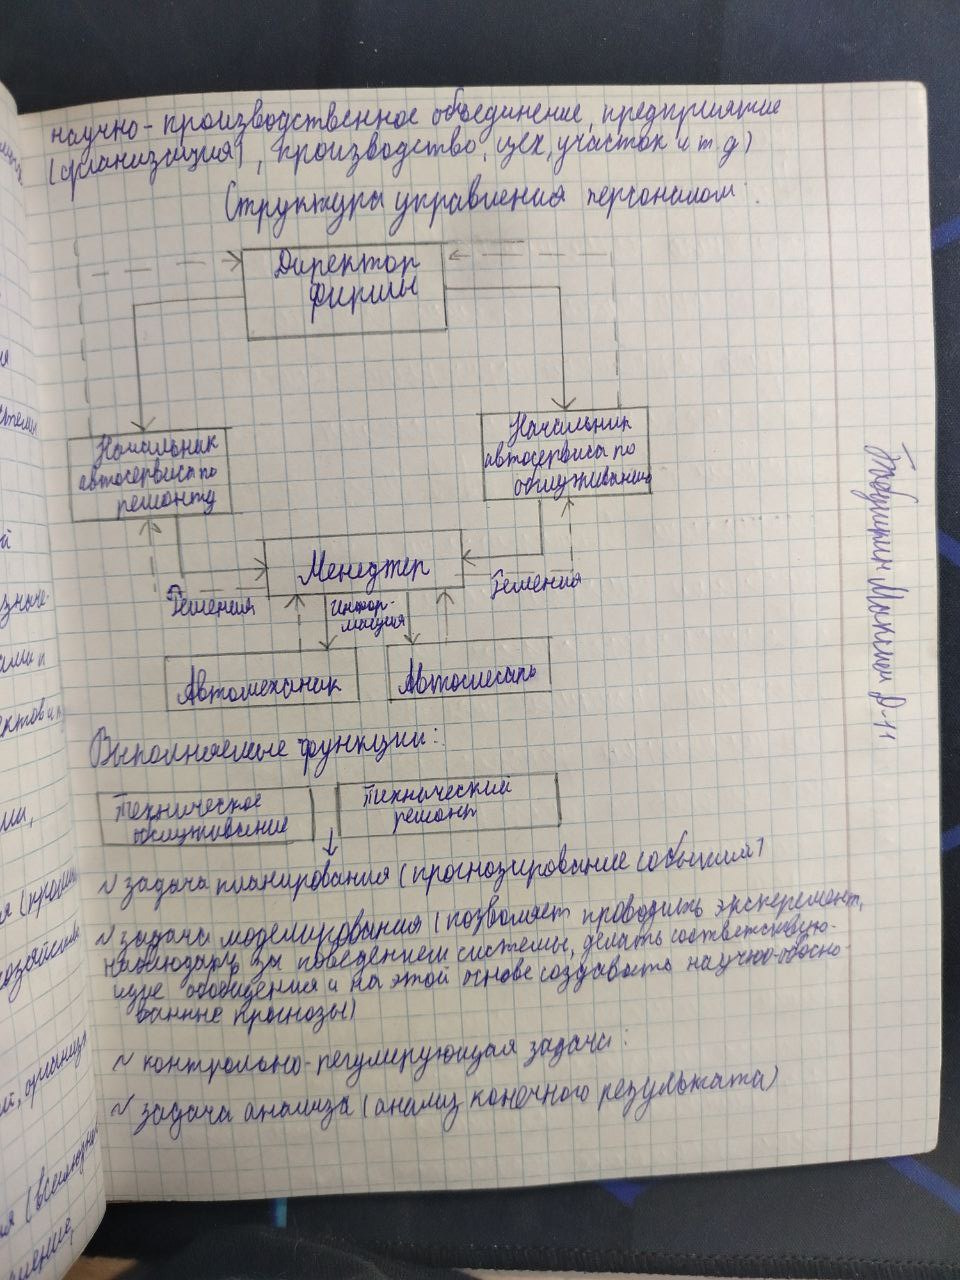 научно-производственное объединение, предприятие
(организация), производство, цех, участок и т д)
Структура управления персоналом:
Директор
фирмы
Начальник
автосервиса по
ремонту
Начальник
автосервиса по
обслуживанию
Менеджер
Решения
Инфор-
мация
Решения
Автомеханик
Автослесарь
Выполняемые функции:
Техническое
обслуживание
Технический
ремонт
~ задача планирования (прогнозирование событий)
~ задача моделирования (позволяет проводить эксперемент,
наблюдать за поведением системы, делать соответствую-
щие обобщения и на этой основе создавать научно-обосно-
ванные прогнозы)
~ контрольно-регулирующая задача:
~ задача анализа (анализ конечного результата)
Максим